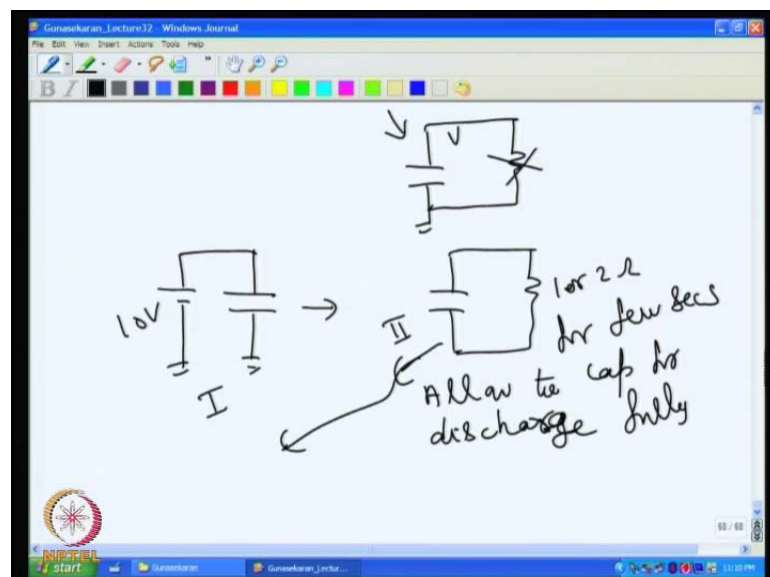 Gunasekaran_Lecture32 - Windows Journal
File Edit View Insert Actions Tools Help
B I
V
10V
I
II
1 or 2 Ω
for few secs
Allow the cap for
discharge fully
68 / 68
NPTEL
start
Gunasekaran
Gunasekaran_Lectur...
11:10 PM